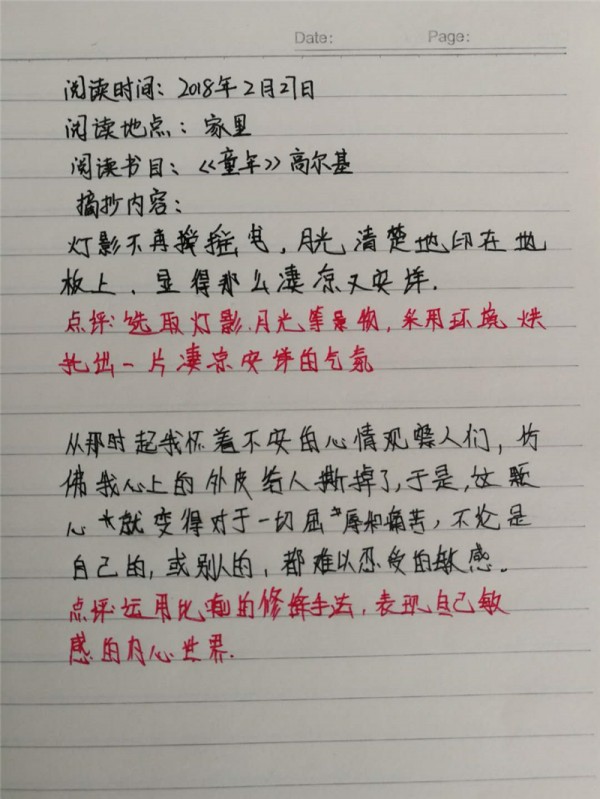 Date: Page:
阅读时间：2018年2月27日
阅读地点：家里
阅读书目：《童年》高尔基
摘抄内容：
灯影不再摇曳，月光清楚地印在地
板上，显得那么凄凉又安
点评：选取灯影、月光等景物，采用环境烘
托出一片凄凉安的气氛
从那时起我怀着不安的心情观察人们，仿
佛我心上的外皮给人撕掉了，于是，这颗
心就变得对于一切屈辱和痛苦，不论是
自己的，或别人的，都难以忍受的敏感。
点评：运用比喻的修辞手法，表现自己敏
感的内心世界.